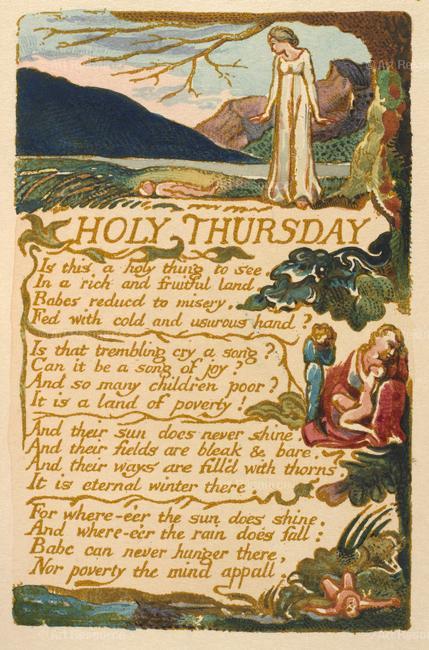 HOLY THURSDAY
Is this a holy thing to see.
In a rich and fruitful land.
Babes reducd to misery.
Fed with cold and usurous hand?
Is that trembling cry a song?
Can it be a song of joy?
And so many children poor?
It is a land of poverty!
And their sun does never shine.
And their fields are bleak & bare.
And their ways are fill'd with thorns
It is eternal winter there.
For where-e'er the sun does shine.
And where-e'er the rain does fall:
Babe can never hunger there,
Nor poverty the mind appall.
© Art Resource